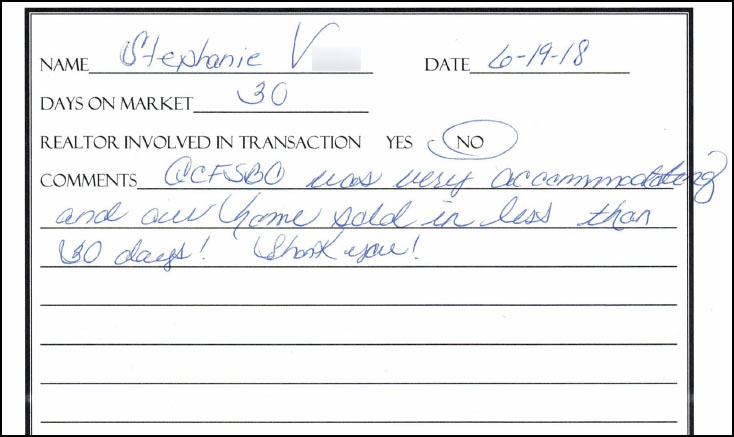 NAME Stephanie V DATE 6-19-18
DAYS ON MARKET 30
REALTOR INVOLVED IN TRANSACTION YES NO
COMMENTS CCFSBO was very accommodating
and our home sold in less than
30 days! Thank you!